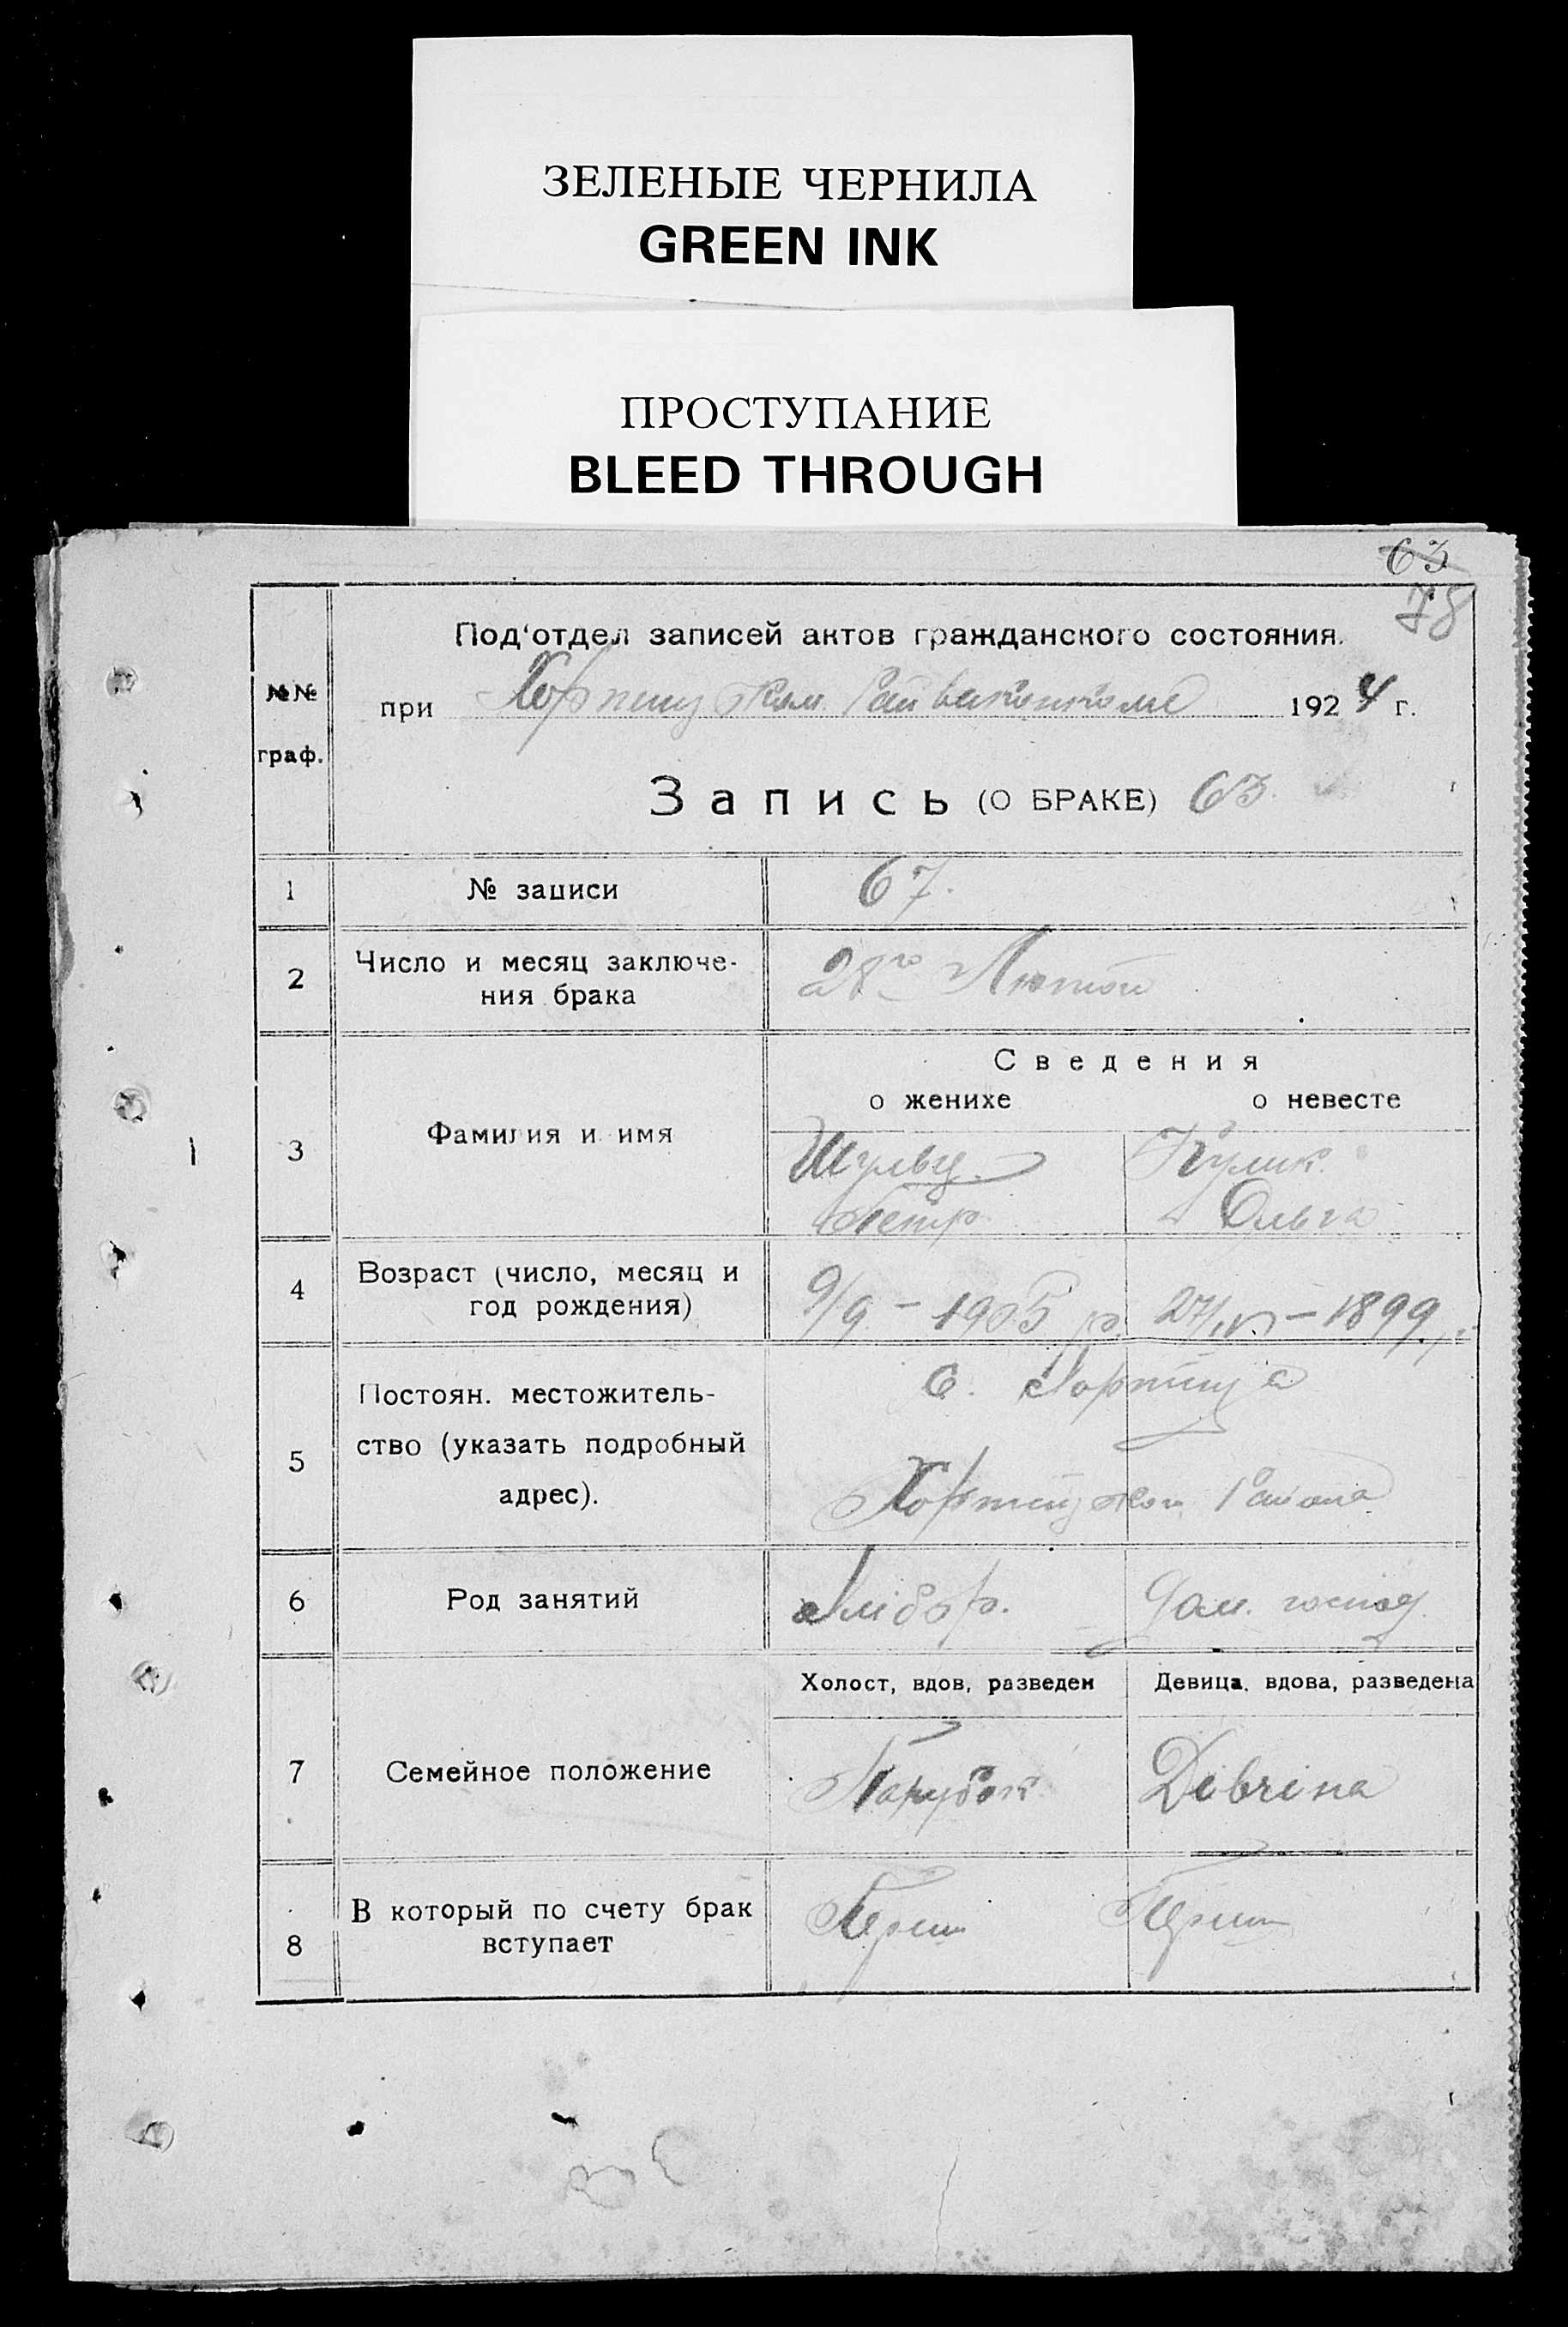 ЗЕЛЕНЫЕ ЧЕРНИЛА
GREEN INK
ПРОСТУПАНИЕ
BLEED THROUGH
63
78
№№
граф.
Под'отдел записей актов гражданского состояния.
при Хортицком Райвиконкоме 1924 г.
Запись (О БРАКЕ) 63.
1 № записи 67.
2 Число и месяц заключе-
ния брака 28го Лютой
Сведения
о женихе о невесте
3 Фамилия и имя Шульц Кулик
Петр Ольга
4 Возраст (число, месяц и
год рождения) 9/9 - 1905 р. 27/IV - 1899 р.
5 Постоян. местожитель-
ство (указать подробный
адрес).
с. Хортица
Хортицкой Района
6 Род занятий Хлібор. Дом. господ.
Холост, вдов, разведен Девица, вдова, разведена
7 Семейное положение Парубок Дівчина
8 В который по счету брак
вступает Перш Перш